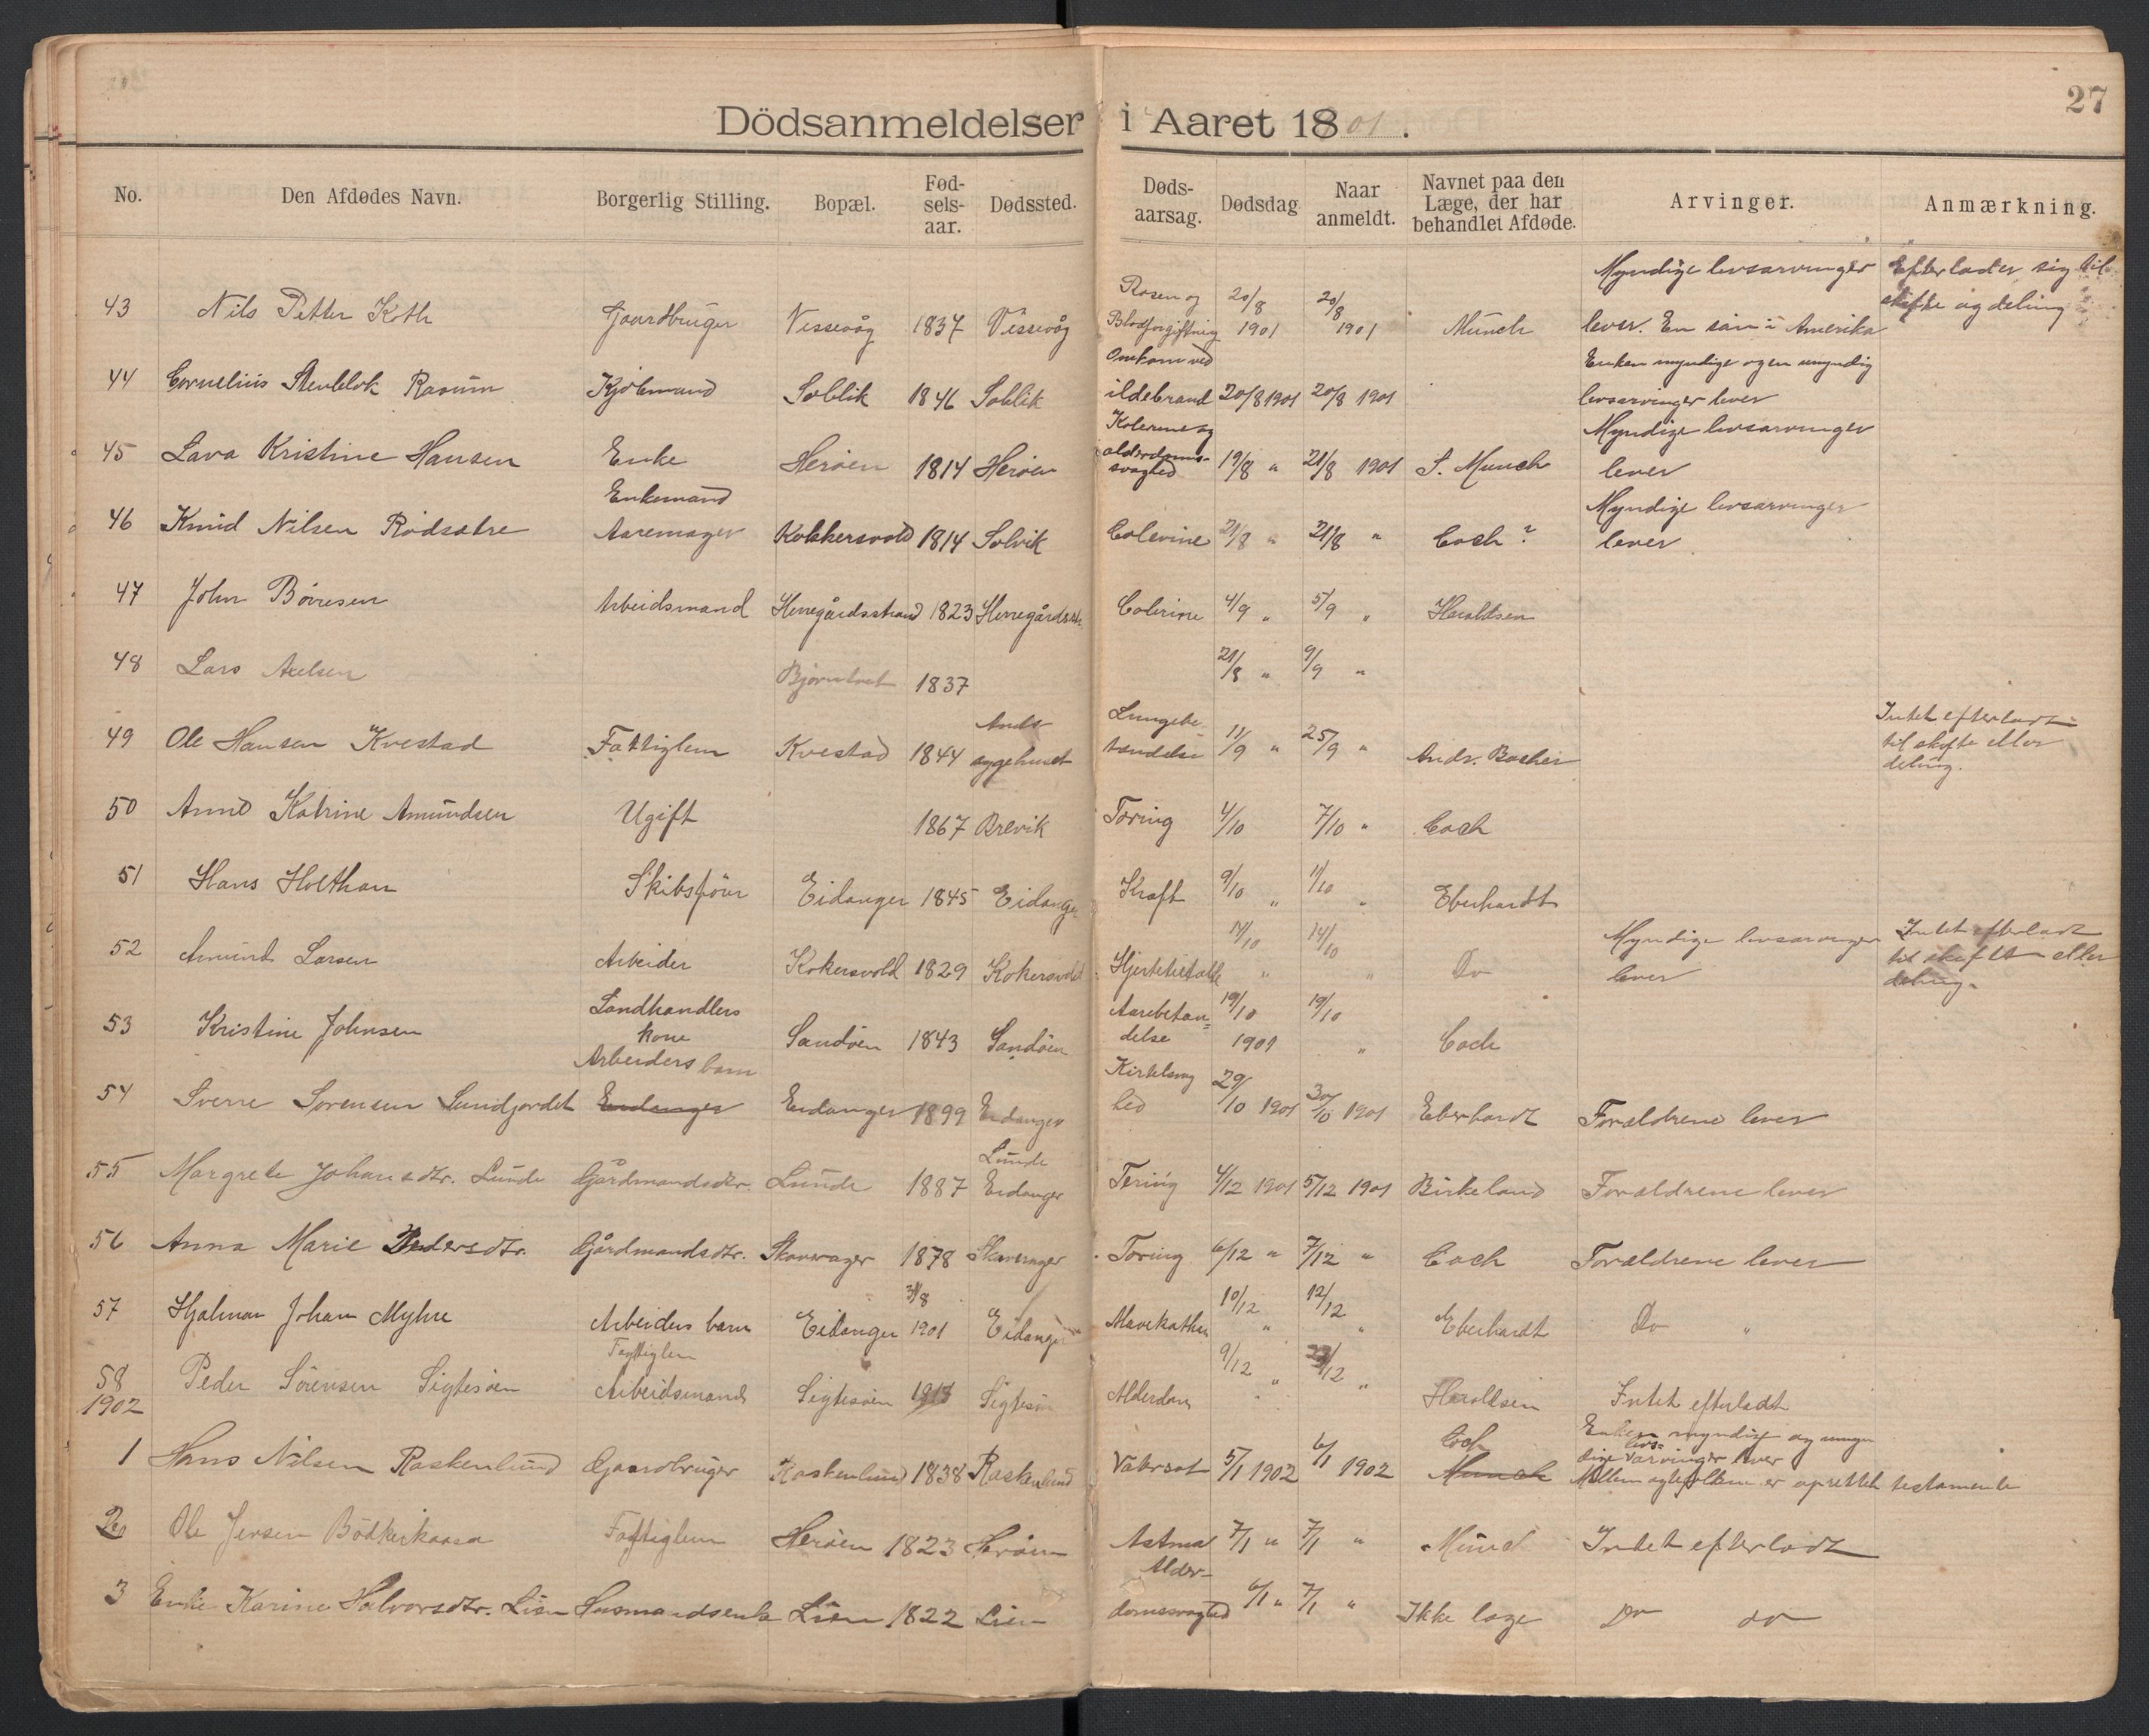 27
Dödsanmeldelser i Aaret 1801.
No. Den Afdødes Navn. Borgerlig Stilling. Bopæl. Fød-sels-aar. Dødssted. Døds-aarsag. Dødsdag Naar anmeldt. Navnet paa den Læge, der har behandlet Afdøde. Arvinger. Anmærkning.
43 Nils Petter Gaardbruger Vissevåg 1837 Vissevåg Rosen og Blodforgiftning 20/8 1901 20/8 1901 Münch Myndige livsarvinger lever. En sön i Amerika Efterlader sig til skifte og deling
44 Cornelius Rasum Kjöbmand Soblik 1846 Soblik Omkom ved ildebrand 20/8 1901 20/8 1901 Enken myndige og en umyndig livsarvinger lever
45 Lava Kristine Hansen Enke Heröen 1814 Heröen Kolerine og alderdoms-svaghed 19/8 " 21/8 1901 S. Munch Myndige livsarvinger lever
46 Knud Nilsen Rödsætre Enkemand Aaremager Kokkersvold 1814 Solvik Colerine 21/8 " 21/8 " Coch ? Myndige livsarvinger lever
47 John Börresen Arbeidsmand Herregårdsstrand 1823 Herregårdsstr. Colerine 4/9 " 5/9 " Haraldsen
48 Lars Axelsen Bjørntvet 1837 21/8 " 9/9 "
49 Ole Hansen Kvestad Fattiglem Kvestad 1844 Amts sygehuset Lungebe-tændelse 11/9 " 25/9 " Andr. Backer Intet efterladt til skifte eller deling.
50 Anne Katrine Amundsen Ugift 1867 Brevik Tæring 4/10 7/10 " Coch
51 Hans Holthan Skibsförer Eidanger 1845 Eidanger Kræft 9/10 " 11/10 " Eberhardt
52 Amund Larsen Arbeider Kokersvold 1829 Kokersvold Hjertetilfælde 11/10 " 14/10 " Do Myndige livsarvinger lever Intet efterladt til skifte eller deling.
53 Kristine Johnsen Landhandlers kone Sandöen 1843 Sandöen Aarebetæn=delse 19/10 1901 19/10 " Coch
54 Sverre Sørensen Lundjordet Arbeiders barn Eidanger Eidanger 1899 Eidanger Kirtelsvaghed 29/10 1901 30/10 1901 Eberhardt Forældrene lever
55 Margrete Johansdtr. Lunde Gårdmandsdtr. Lunde 1887 Lunde Eidanger Tæring 4/12 1901 5/12 1901 Birkeland Forældrene lever
56 Anna Marie Pedersdtr. Gårdmandsdtr. Skavrager 1878 Skavrager Tæring 6/12 " 7/12 " Coch Forældrene lever
57 Hjalmar Johan Myhre Arbeiders barn Eidanger 31/8 1901 Eidanger Mavekathar 10/12 " 12/12 " Eberhardt Do "
58 Peder Sörensen Sigtesöen Fattiglem Arbeidsmand Sigtesöen 1818 Sigtesöen Alderdom 9/12 " 23/12 " Haraldsen Intet efterladt
1902
1 Hans Nilsen Raskenlund Gaardbruger Raskenlund 1838 Raskenlund Vatersot 5/1 1902 6/1 1902 Coch Munch Enken myndige og umyndige livsarvinger lever Mellem ægtefolkene er oprettet testamente
2 Ole Jensen Bödkerkaasa Fattiglem Heröen 1823 Heröen Astma 7/1 " 7/1 " Münch Intet efterladt
3 Enke Karine Halvorsdtr. Lien Husmandsenke Lien 1822 Lien Alder-domssvaghed 6/1 " 7/1 " Ikke læge Do do